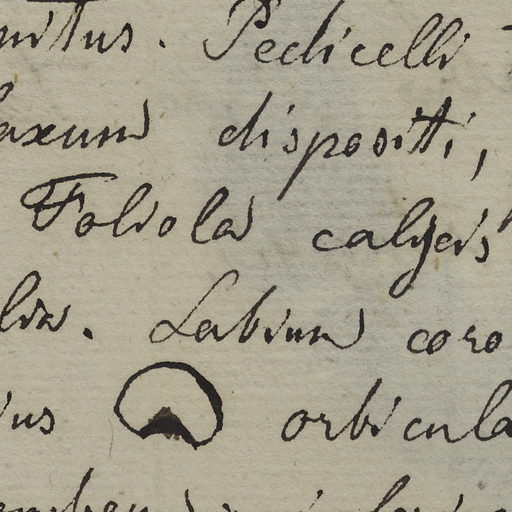 mittus. Pedicelli
laxum dispositi,
Foliola calycis
lia. Labium coro
ius orbicula